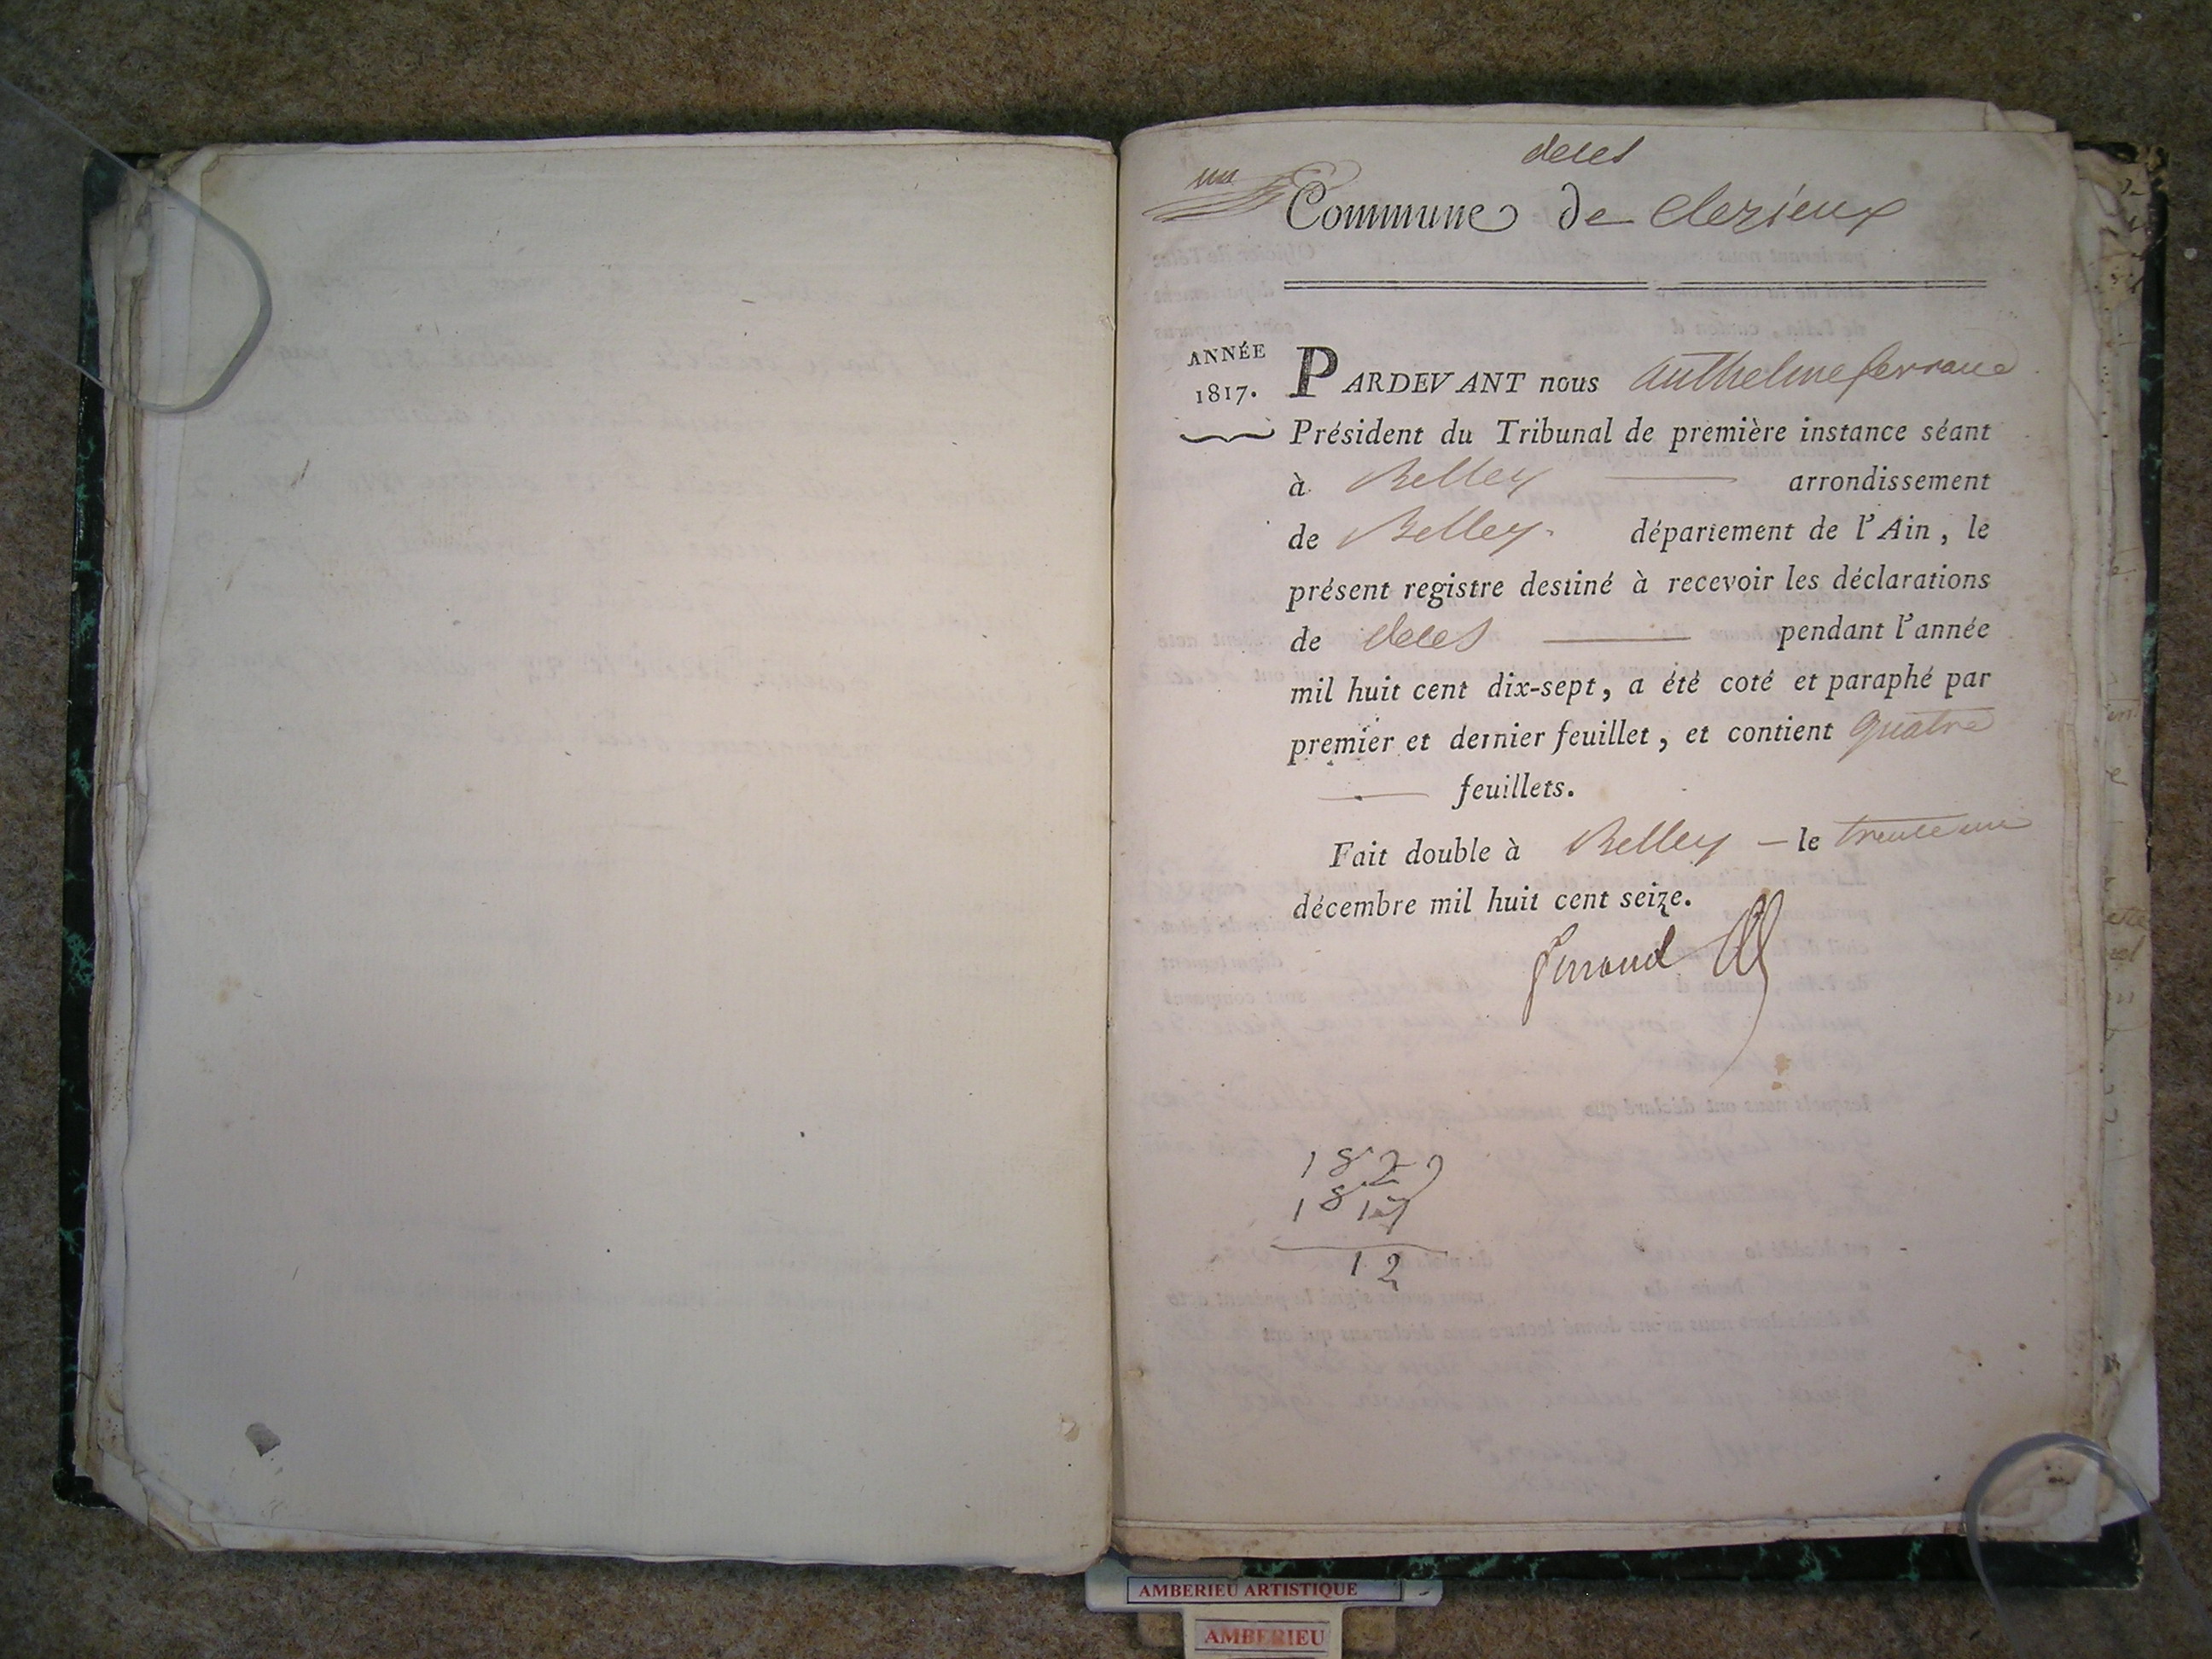 deces
un
Commune de Clezieux
ANNÉE
1817.
PARDEVANT nous Anthelme ferrand
Président du Tribunal de première instance séant
à Belley arrondissement
de Belley. département de l'Ain, le
présent registre destiné à recevoir les déclarations
de deces pendant l'année
mil huit cent dix-sept, a été coté et paraphé par
premier et dernier feuillet, et contient quatre
feuillets.
Fait double à Belley — le trente un
décembre mil huit cent seize.
ferrand
1829
1817
12
AMBERIEU ARTISTIQUE
AMBERIEU